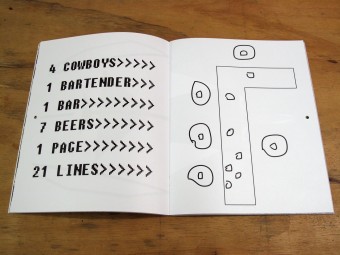 4 COWBOYS>>>>>
1 BARTENDER>>>
1 BAR>>>>>>>>>
7 BEERS>>>>>>>
1 PAGE>>>>>>>
21 LINES>>>>>>